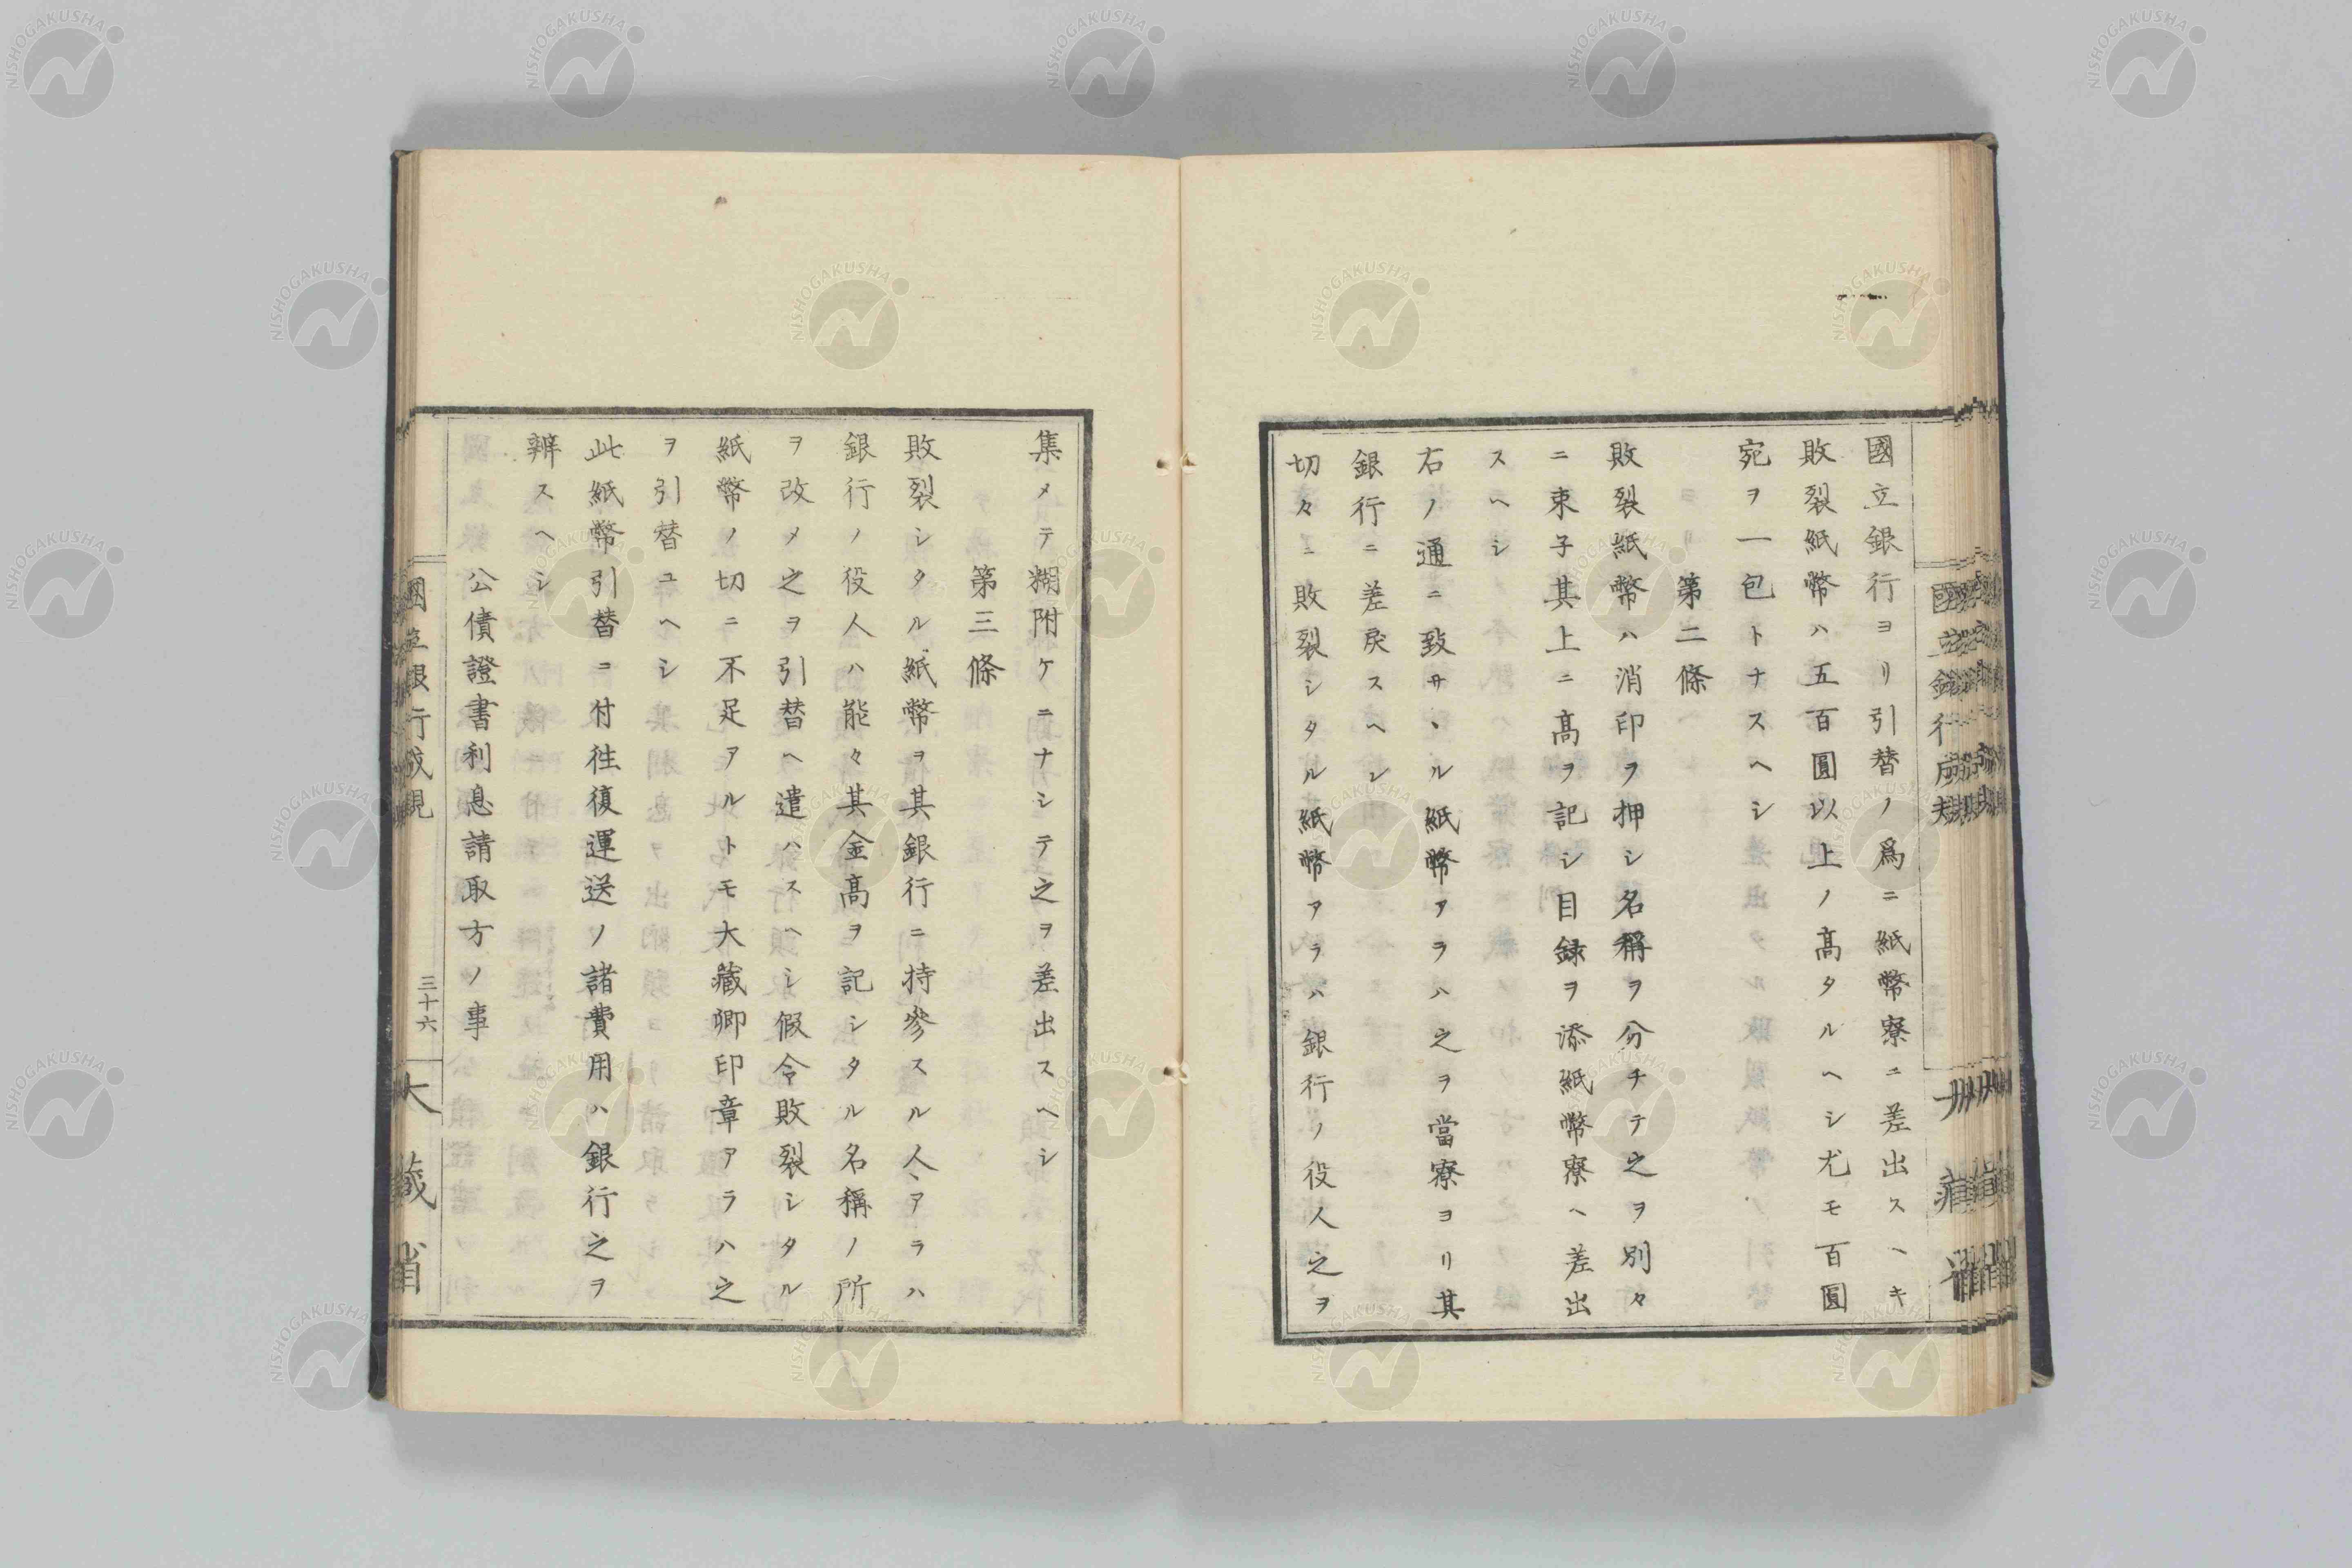 國立銀行ヨリ引替ノ爲ニ紙幣寮ニ差出スヘキ
敗裂紙幣ハ五百圓以上ノ髙タルヘシ尤モ百圓
宛ヲ一包トナスヘシ
第二條
敗裂紙幣ハ消印ヲ押シ名稱ヲ分チテ之ヲ別々
ニ束子其上ニ髙ヲ記シ目録ヲ添紙幣寮ヘ差出
スヘシ
右ノ通ニ致サヽル紙幣アラハ之ヲ當寮ヨリ其
銀行ニ差戾スヘシ
切々ニ敗裂シタル紙幣アラハ銀行ノ役人之ヲ
集メテ糊附ケニナシテ之ヲ差出スヘシ
第三條
敗裂シタル紙幣ヲ其銀行ニ持參スル人アラハ
銀行ノ役人ハ能々其金髙ヲ記シタル名稱ノ所
ヲ改メ之ヲ引替ヘ遣ハスヘシ假令敗裂シタル
紙幣ノ切ニ不足アルトモ大藏卿印章アラハ之
ヲ引替ユヘシ
此紙幣引替ニ付徃復運送ノ諸費用ハ銀行之ヲ
辨スヘシ
公債證書利息請取方ノ事
國立銀行成規
三十六
大藏省
NISHOGAKUSHA